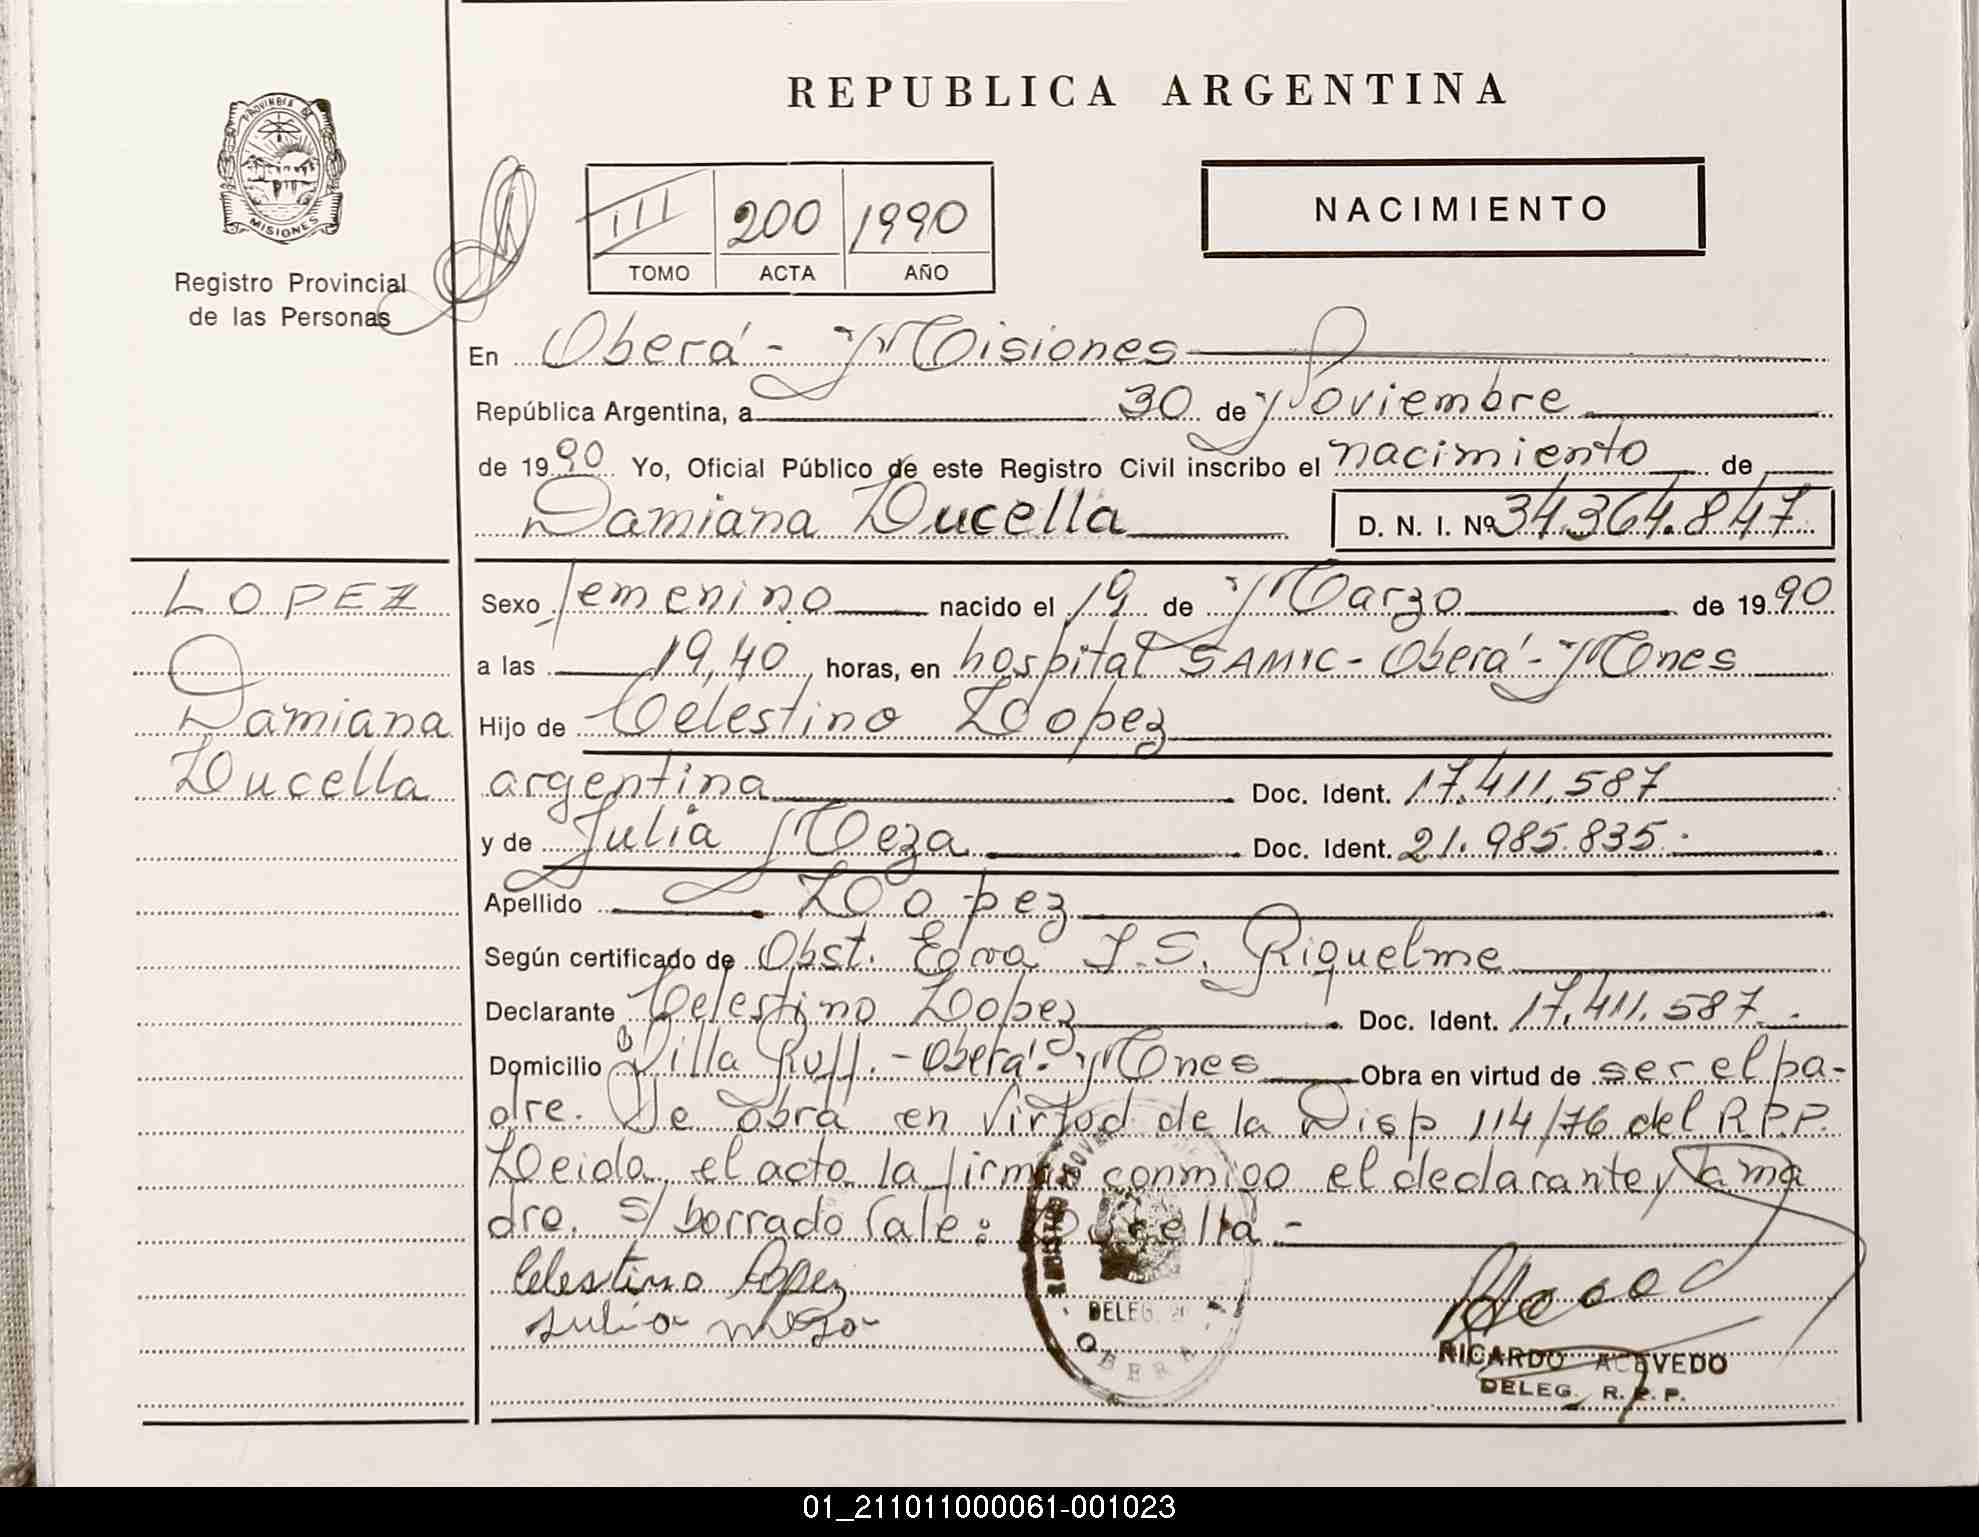 REPUBLICA ARGENTINA
PROVINCIA DE
MISIONES
Registro Provincial
de las Personas
III 200 1990
TOMO ACTA AÑO
NACIMIENTO
En Oberá - Misiones
República Argentina, a 30 de Noviembre
de 1990 Yo, Oficial Público de este Registro Civil inscribo el nacimiento de
Damiana Lucella D. N. I. Nº 34.364.847
LOPEZ
Damiana
Lucella
Sexo femenino nacido el 19 de Marzo de 1990
a las 19,40 horas, en hospital SAMIC - Oberá - Mnes
Hijo de Celestino Lopez
argentina Doc. Ident. 17.411.587
y de Julia Meza Doc. Ident. 21.985.835.
Apellido Lopez
Según certificado de Obst. Edva I.S. Riquelme
Declarante Celestino Lopez Doc. Ident. 17.411.587.-
Domicilio Villa Ruff. - Oberá - Mnes Obra en virtud de ser el pa-
dre. Se obra en virtud de la Disp 114/76 del R.P.P.
Leida el acta la firman conmigo el declarante y la ma
dre. s/ borrado Vale: Lucella.-
Celestino Lopez
Julia Meza
DELEG.
OBERA
RICARDO ACEVEDO
DELEG. R. P. P.
01_211011000061-001023